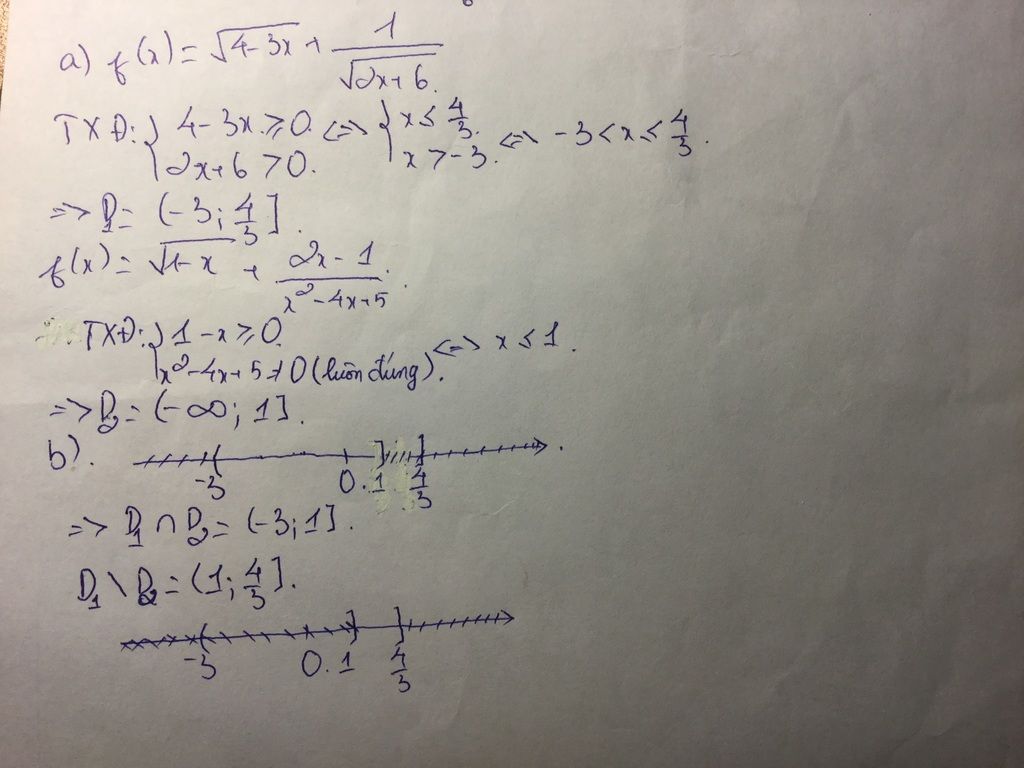 a) f(x) = √(4-3x) + 1/√(2x+6).
TXĐ: { 4-3x ≥ 0. <=> { x ≤ 4/3. <=> -3 < x ≤ 4/3.
2x+6 > 0. x > -3.
=> D₁ = (-3; 4/3].
f(x) = √(1-x) + (2x-1)/(x²-4x+5).
TXĐ: { 1-x ≥ 0. <=> x ≤ 1.
x²-4x+5 ≠ 0 (luôn đúng).
=> D₂ = (-∞; 1].
b).
-3 0. 1 4/3
=> D₁ ∩ D₂ = (-3; 1].
D₁ \ D₂ = (1; 4/3].
-3 0. 1 4/3